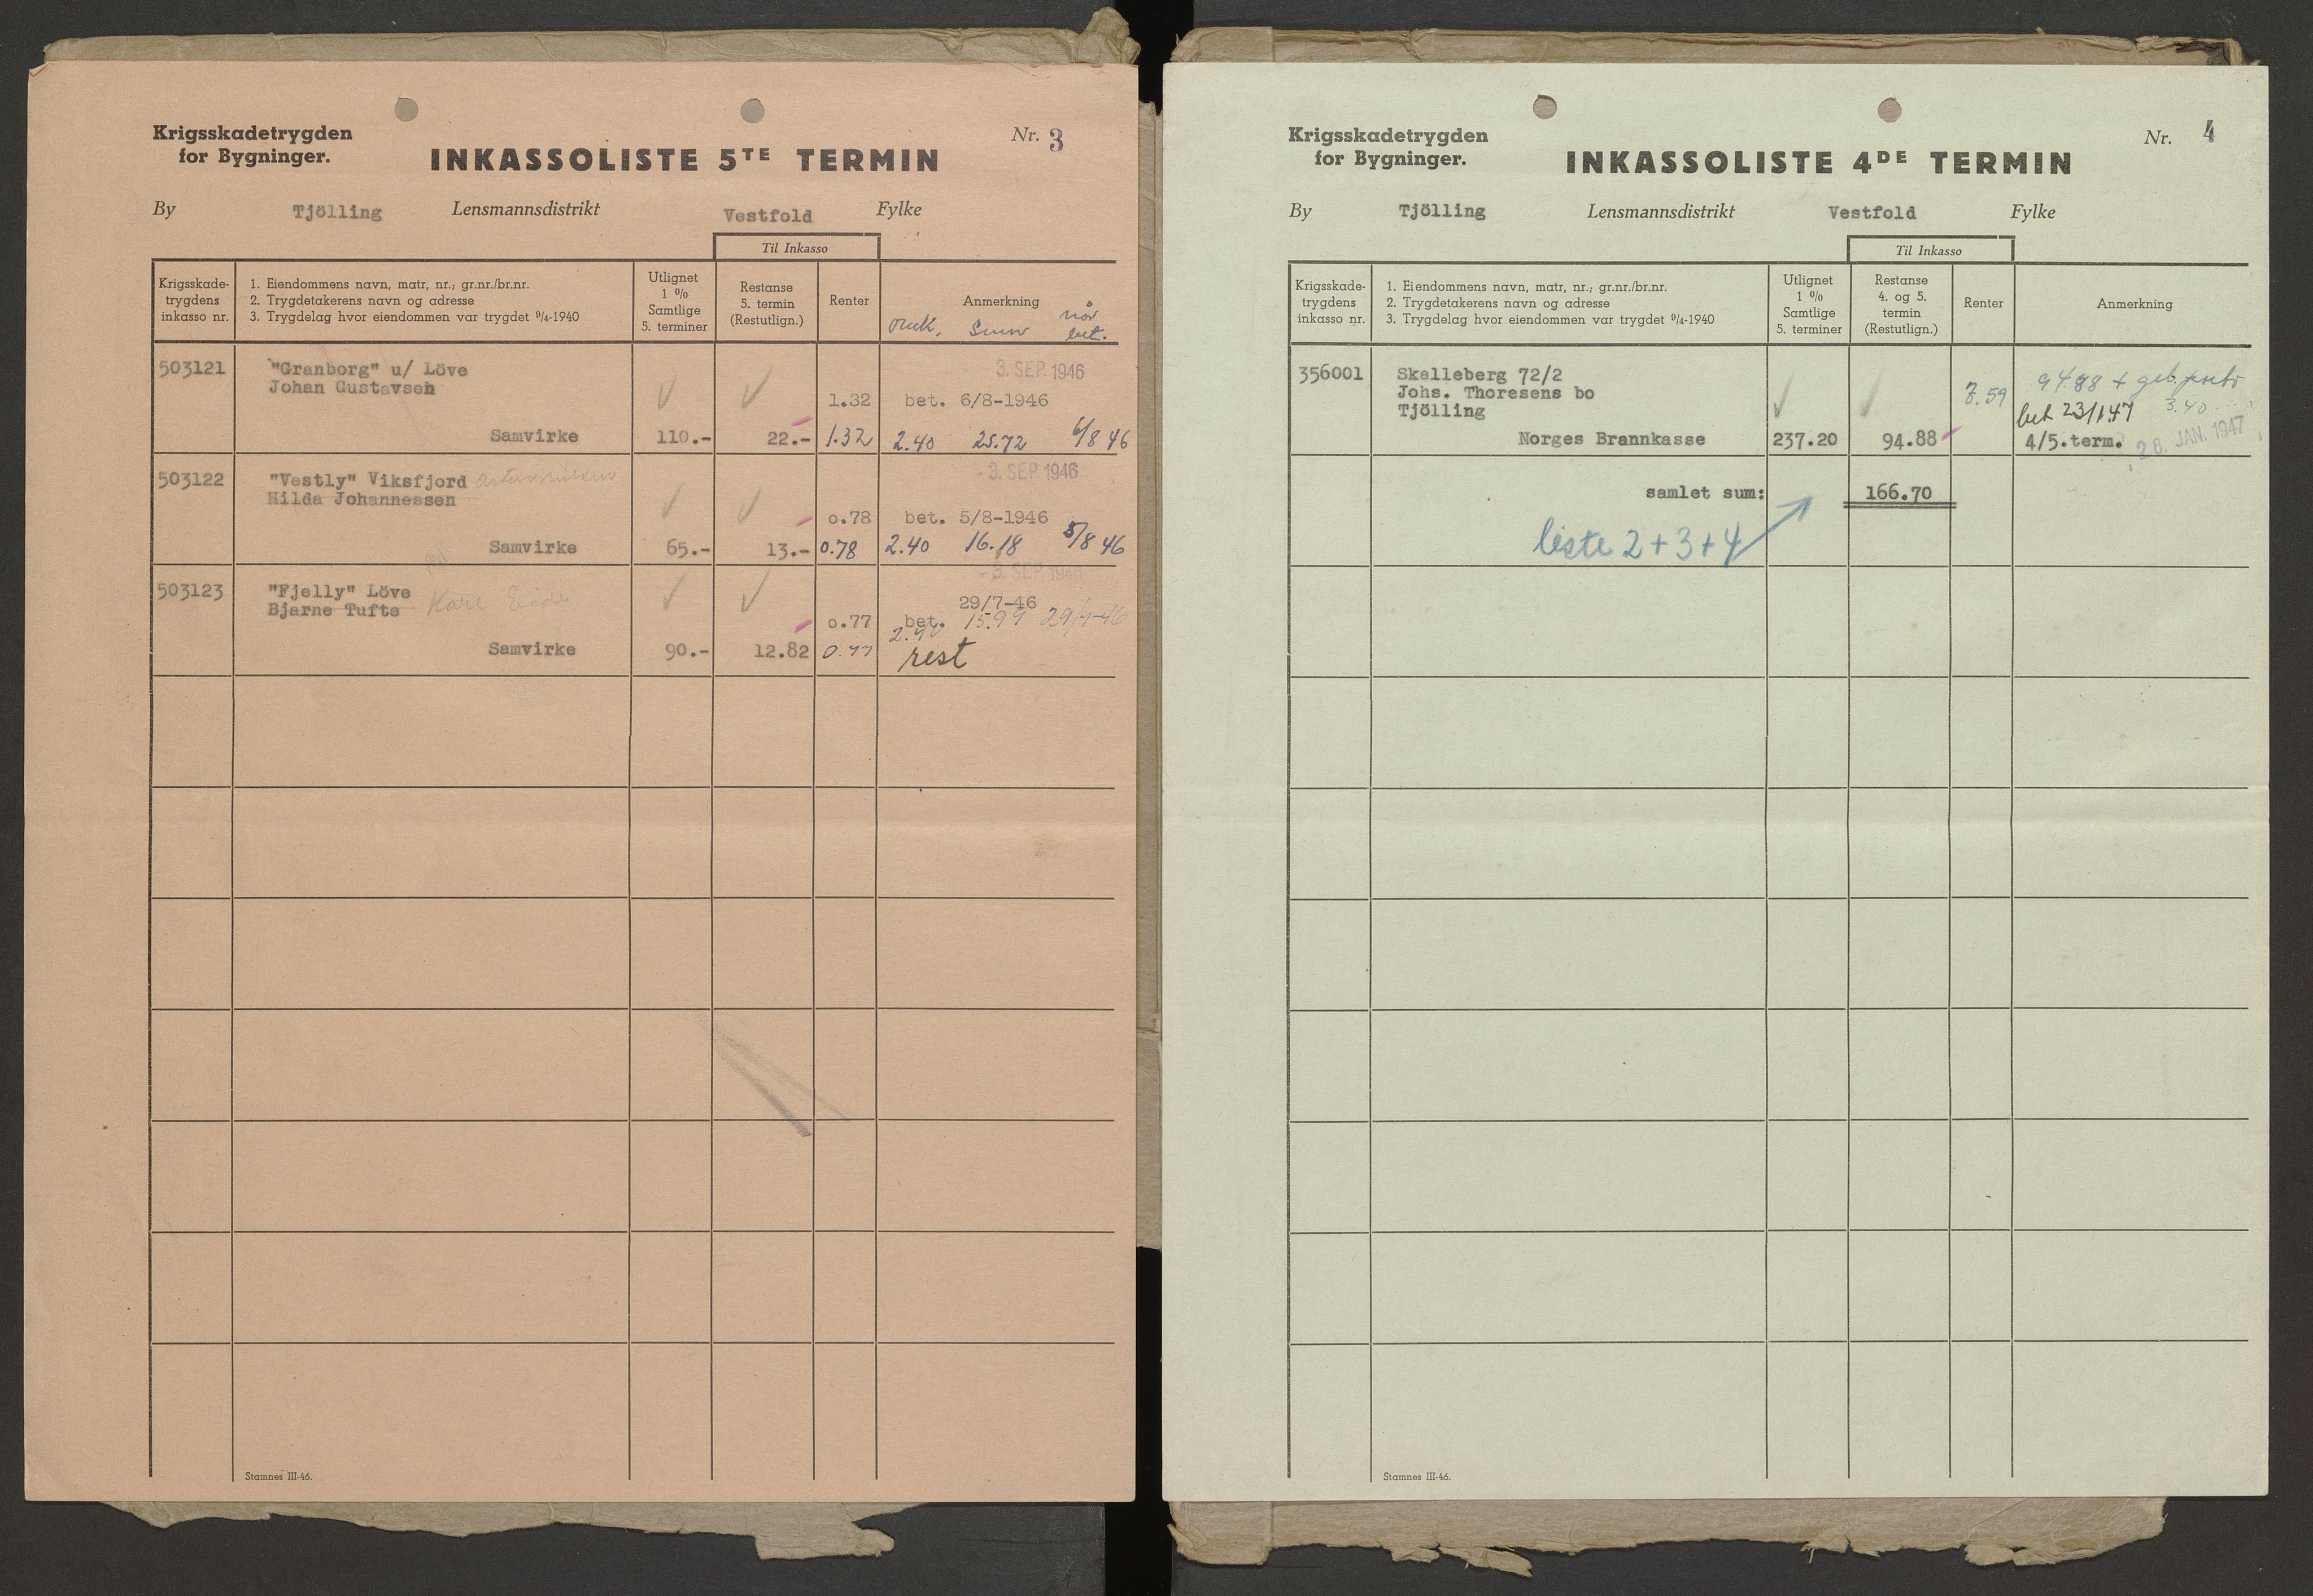 Krigsskadetrygden
for Bygninger.
INKASSOLISTE 5TE TERMIN
Nr. 3
By Tjölling Lensmannsdistrikt Vestfold Fylke
Til Inkasso
Krigsskade-
trygdens
inkasso nr.
1. Eiendommens navn, matr, nr.; gr.nr./br.nr.
2. Trygdetakerens navn og adresse
3. Trygdelag hvor eiendommen var trygdet 9/4-1940
Utlignet
1 %
Samtlige
5. terminer
Restanse
5. termin
(Restutlign.)
Renter
Anmerkning
når
bet.
503121 "Granborg" u/ Löve 3. SEP. 1946
Johan Gustavsen
1.32 bet. 6/8-1946
Samvirke 110.- 22.- 1.32 2.40 25.72 6/8 46
503122 "Vestly" Viksfjord - 3. SEP. 1946
Hilda Johannessen
0.78 bet. 5/8-1946
Samvirke 65.- 13.- 0.78 2.40 16.18 5/8 46
- 3. SEP. 1946
503123 "Fjelly" Löve 29/7-46
Bjarne Tufte Karl Eide
0.77 bet. 15.99 29/7-46
2.40
Samvirke 90.- 12.82 0.77 rest
Stamnes III-46.
Krigsskadetrygden
for Bygninger.
INKASSOLISTE 4DE TERMIN
Nr. 4
By Tjölling Lensmannsdistrikt Vestfold Fylke
Til Inkasso
Krigsskade-
trygdens
inkasso nr.
1. Eiendommens navn, matr, nr.; gr.nr./br.nr.
2. Trygdetakerens navn og adresse
3. Trygdelag hvor eiendommen var trygdet 9/4-1940
Utlignet
1 %
Samtlige
5. terminer
Restanse
4. og 5.
termin
(Restutlign.)
Renter
Anmerkning
356001 Skalleberg 72/2 94.88 + geb.
Johs. Thoresens bo 7.59
Tjölling bet 23/1.47 3.40
Norges Brannkasse 237.20 94.88 4/5.term. 28. JAN. 1947
samlet sum: 166.70
liste 2+3+4
Stamnes III-46.